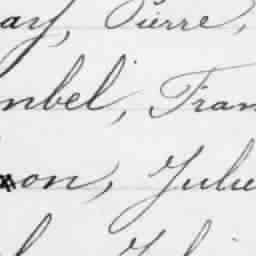 ay, Pierre,
nbel, Fran
on, Julie